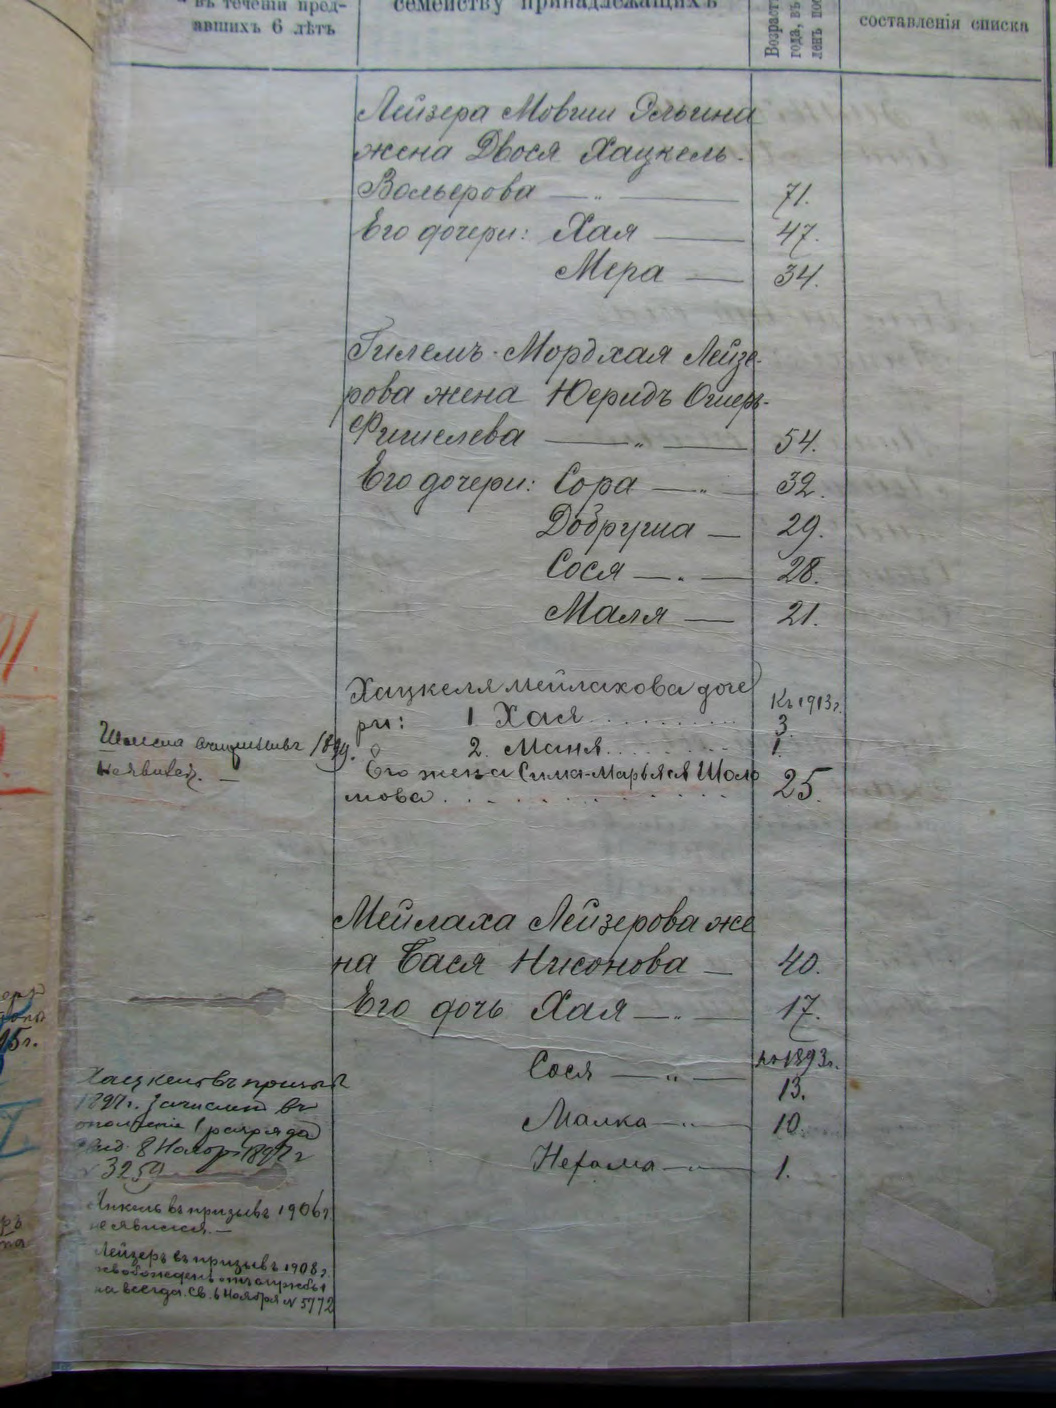 въ теченіи пред-
авшихъ 6 лѣтъ
семейству принадлежащихъ
составленія списка
Лейзера Мовши Эльина
жена Двося Хацкель-
Вольерова — „ — 71.
Его дочери: Хая — 47.
Мера — 34.
Гилемъ-Мордхая Лейзе-
рова жена Юеридъ Ошеръ-
Фишелева — „ — 54.
Его дочери: Сора — „ — 32.
Добруша — 29.
Сося — „ — 28.
Маля — 21.
Хацкеля Мейлахова доче
ри: 1. Хася . . . . . . . . Къ 1913 г. 3
2. Маня . . . . . . . . 1.
Его жена Сима-Марьяся Шоло
мова . . . . . . . . . . 25.
1899.
неявился. —
Мейлаха Лейзерова же
на Бася Нисонова — 40.
Его дочь Хая — „ — 17.
Къ 1893 г.
Сося — „ — 13.
Малка — „ — 10.
Нехама — „ — 1.
призывъ
1897 г. зачисленъ въ
ополченіе 1 разряда
8 Нояб 1897 г
№ 3259
въ призывъ 1906 г
неявился. —
Лейзеръ въ призывъ 1908 г.
освобожденъ отъ службы
на всегда. Св. 6 Ноября № 5772